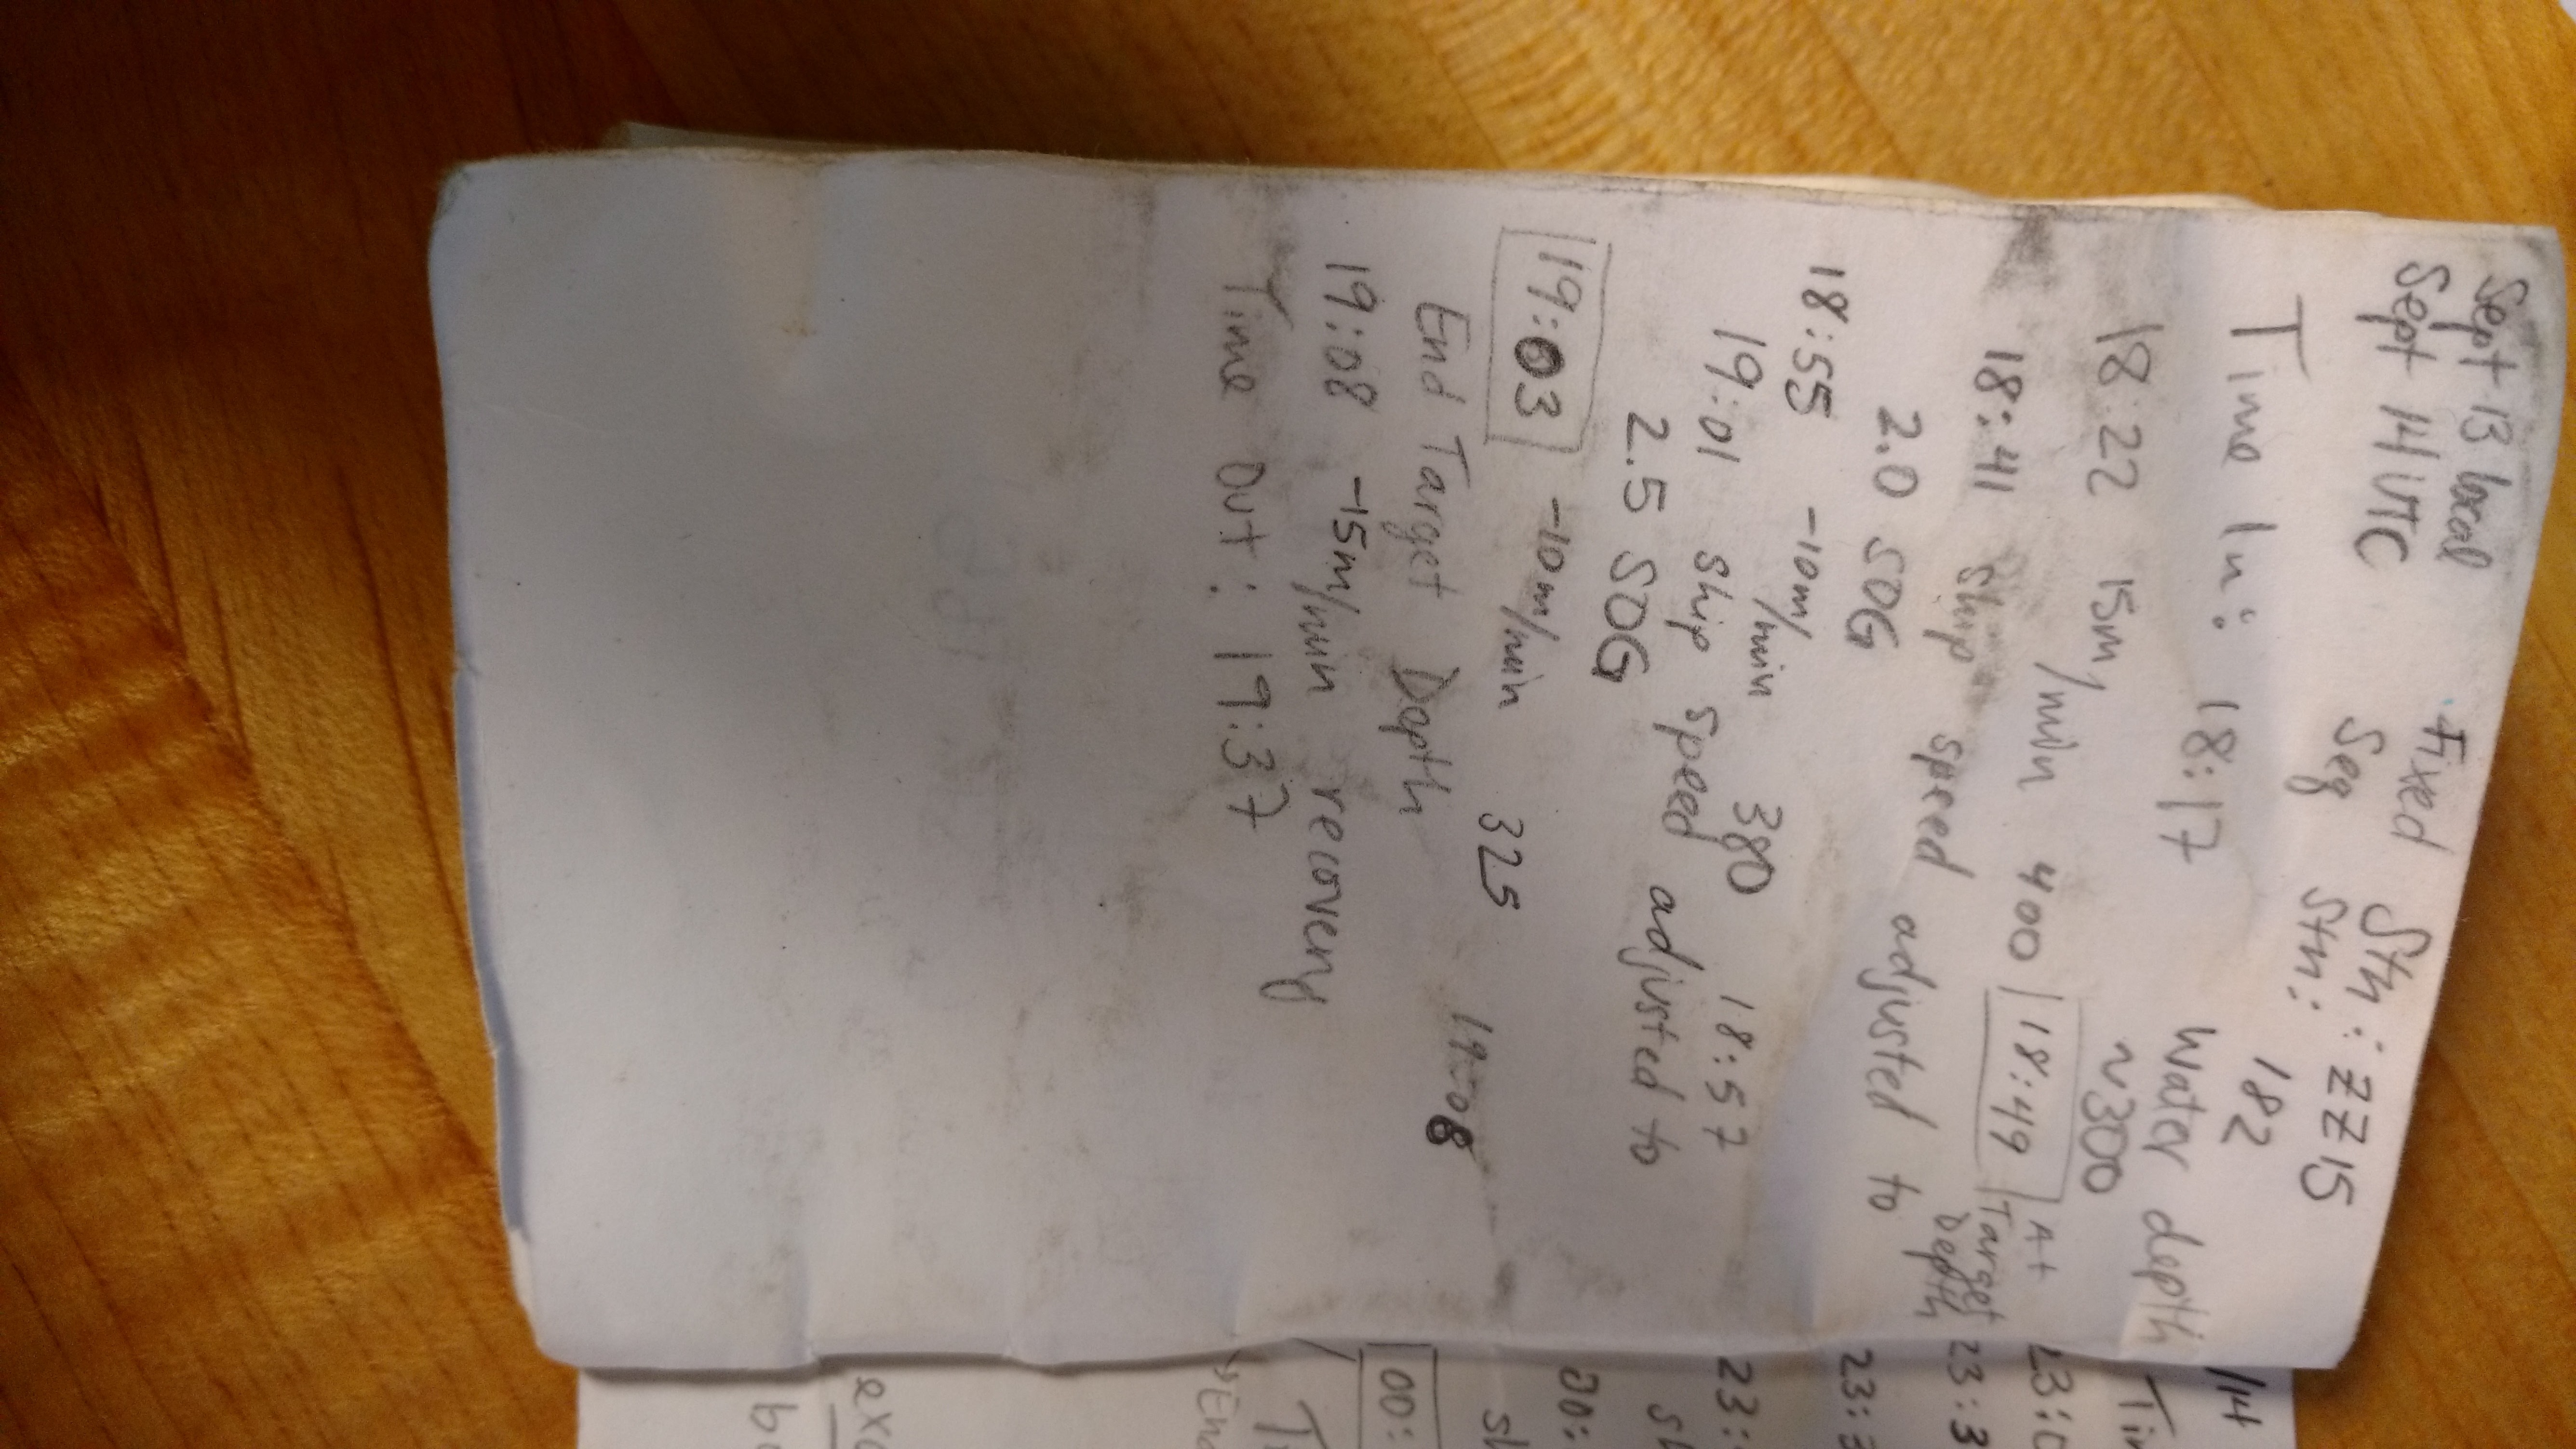 Sept 13 local Fixed Stn: ZZ15
Sept 14 UTC Seq Stn: 182
Time In: 18:17 Water depth
~300
18:22 15m/min 400 18:49 At Target Depth
18:41 Ship speed adjusted to
2.0 SOG
18:55 -10m/min 380 18:57
19:01 Ship speed adjusted to
2.5 SOG
19:03 -10m/min 325 19:08
End Target Depth
19:08 -15m/min recovery
Time Out: 19:37
/14
Tim
23:0
23:3
23:
23:
00:
00: